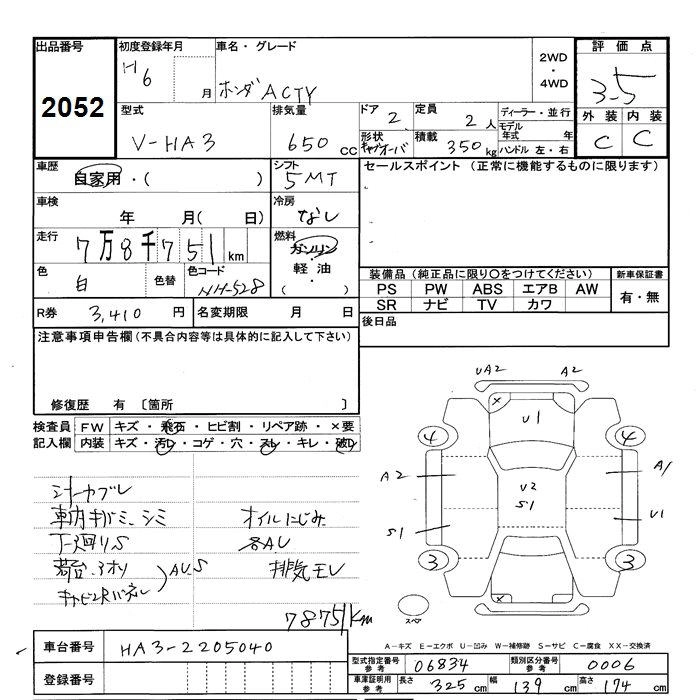 出品番号 初度登録年月 車名・グレード 2WD・4WD 評価点
2052 H6 月 ホンダ ACTY 3.5
型式 排気量 ドア 定員 ディーラー・並行 外装 内装
V-HA3 650 CC 2 2人 モデル年式 年 C C
形状 キャブオーバ 積載 350kg ハンドル 左・右
車歴 自家用・( ) シフト 5MT セールスポイント (正常に機能するものに限ります)
車検 年 月( 日) 冷房 なし
走行 7万8千751km 燃料 ガソリン・軽油・( )
色 白 色替 色コード NH-528
装備品 (純正品に限り○をつけてください) 新車保証書
PS PW ABS エアB AW 有・無
SR ナビ TV カワ
R券 3,410円 名変期限 月 日 後日品
注意事項申告欄(不具合内容等は具体的に記入して下さい)
修復歴 有 〔箇所 〕
検査員記入欄 FW キズ・飛石・ヒビ割・リペア跡・×要
内装 キズ・汚レ・コゲ・穴・スレ・キレ・破レ
車内キバミ、シミ オイルにじみ
下廻りS 各AU
荷台、アオリ AU.S 排気モレ
78751km
UA2 A2
× U1
4 4
A2 A1
U2
S1
S1 U1
3 3
×
スペア
A-キズ E-エクボ U-凹み W-補修跡 S-サビ C-腐食 XX-交換済
車台番号 HA3-2205040
型式指定番号 参考 06834 類別区分番号 参考 0006
登録番号
車庫証明用 参考 長さ 325cm 幅 139cm 高さ 174cm